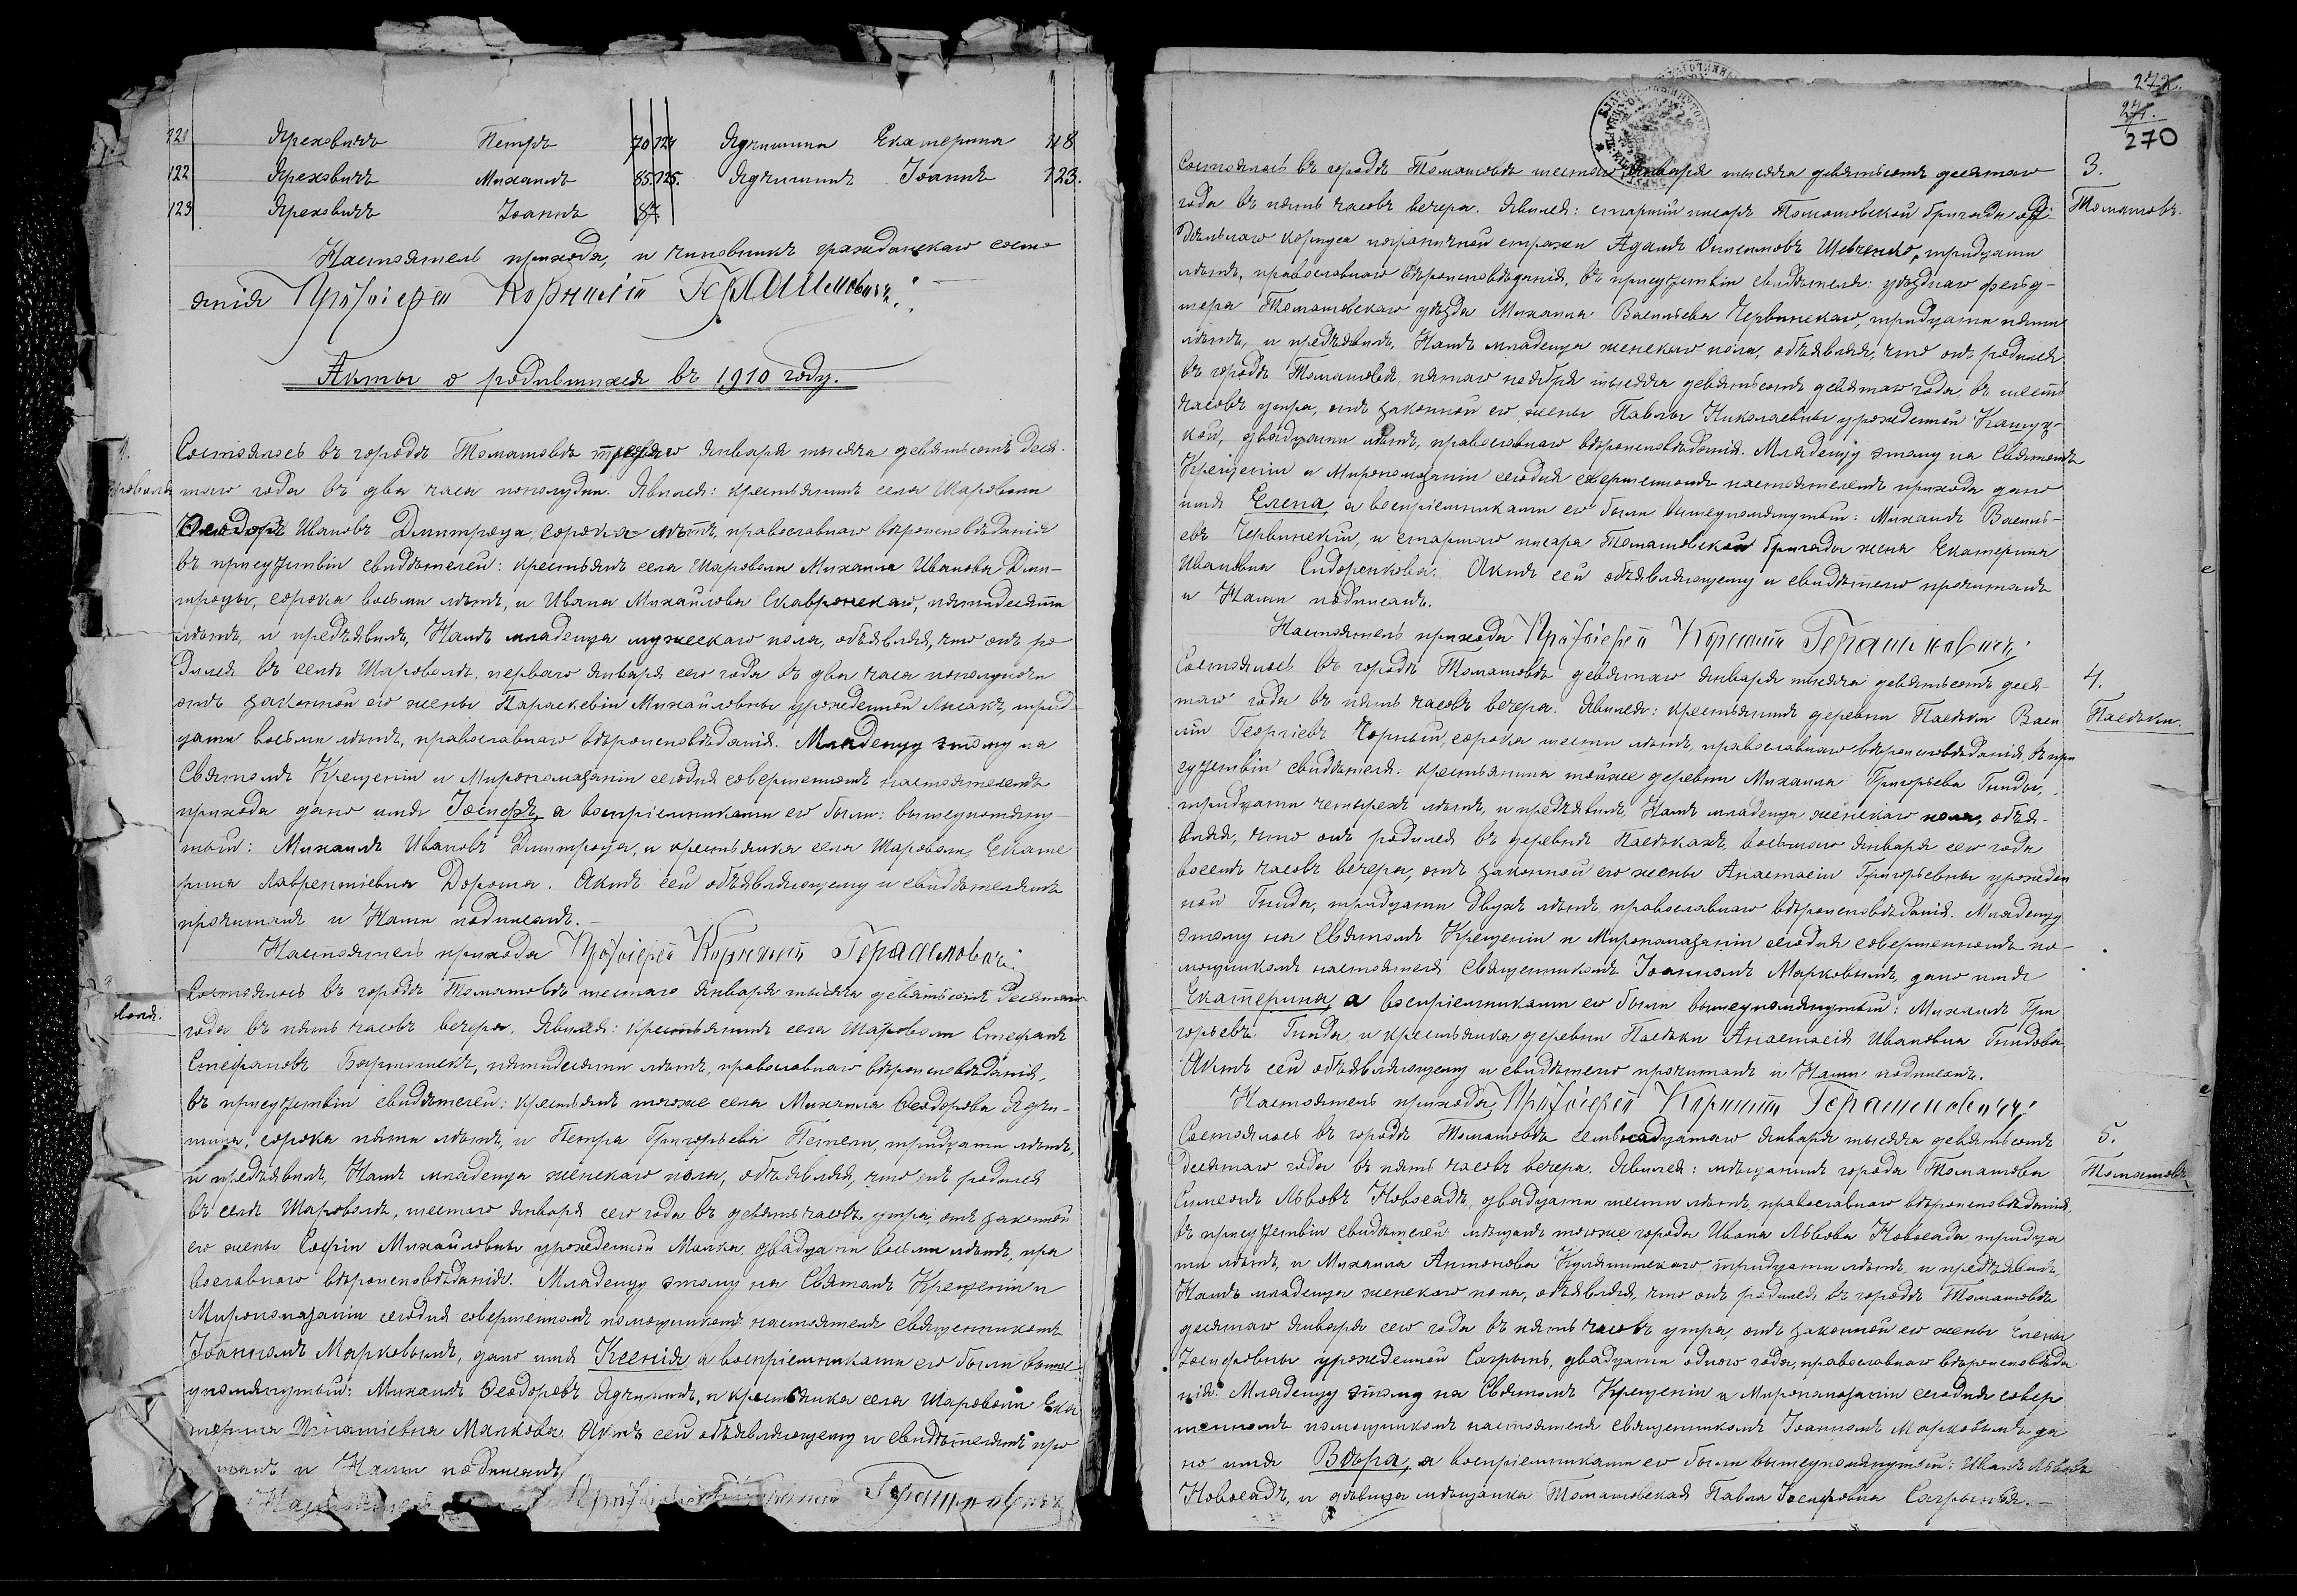 121 Яреховичъ Петръ 70 124 Ядчишина Екатерина 118
122 Яреховичъ Михаилъ 85 125. Ядчишинъ Іоаннъ 123.
123 Яреховичъ Іоаннъ 87
Настоятель прихода, и чиновникъ гражданскаго состо-
янія Протоіерей Корнилій
Акты о родившихся въ 1910 году.
1.
Состоялось въ городѣ Томашовѣ третьяго Января тысяча девятьсотъ деся-
таго года въ два часа пополудни. Явился: крестьянинъ села Шароволи
Ѳеодоръ Ивановъ Дмитроца, сорока лѣтъ, православнаго вѣроисповѣданія
въ присутствіи свидѣтелей: крестьянъ села Шароволи Михаила Иванова Дми-
троцы, сорока восьми лѣтъ, и Ивана Михайлова Скавронскаго, пятидесяти
лѣтъ, и предъявилъ, Намъ младенца мужескаго пола, объявляя, что онъ ро-
дился въ селѣ Шароволѣ, перваго Января сего года въ два часа пополуночи
отъ законной его жены Параскевіи Михайловны урожденной Лысакъ, трид-
цати восьми лѣтъ, православнаго вѣроисповѣданія. Младенцу этому на
Святомъ Крещеніи и Миропомазаніи сегодня совершенномъ настоятелемъ
прихода дано имя Іосифъ, а воспріемниками его были: вышеупомяну-
тый: Михаилъ Ивановъ Дмитроца, и крестьянка села Шароволи, Екате
рина Лаврентіевна Дороша. Актъ сей объявляющему и свидѣтелямъ
прочитанъ и Нами подписанъ.
Настоятель прихода Протоіерей Корнилій
Состоялось въ городѣ Томашовѣ шестаго Января тысяча девятьсотъ десятаго
воля.
года въ пять часовъ вечера. Явился: крестьянинъ села Шароволи Стефанъ
Стефановъ Бартошекъ, пятидесяти лѣтъ, православнаго вѣроисповѣданія,
въ присутствіи свидѣтелей: крестьянъ тогоже села Михаила Ѳеодорова Ядчи-
шина, сорока пяти лѣтъ, и Петра Григорьева тридцати лѣтъ,
и предъявилъ, Намъ младенца женскаго пола, объявляя, что онъ родился
въ селѣ Шароволѣ, шестаго Января сего года въ девять часовъ утра, отъ законной
его жены Софіи Михайловны урожденной Малка, двадцати восьми лѣтъ, пра
вославнаго вѣроисповѣданія. Младенцу этому на Святомъ Крещеніи и
Миропомазаніи сегодня совершенномъ помощникомъ настоятеля священникомъ
Іоанномъ Марковымъ, дано имя Ксенія а воспріемниками его были выше-
упомянутый: Михаилъ Ѳеодоровъ Ядчишинъ, и крестьянка села Шароволи Ека
терина Игнатіевна Малкова. Актъ сей объявляющему и свидѣтелямъ про
читанъ и Нами подписанъ
Настоятель Протоіерей
272.
271.
270
3.
Томашовъ.
Состоялось въ городѣ Томашовѣ шестаго Января тысяча девятьсотъ десятаго
года въ пять часовъ вечера. Явился: старшій писарь Томашовской бригады от-
дѣльнаго корпуса пограничной стражи Адамъ Шевченко, тридцати
лѣтъ, православнаго вѣроисповѣданія, въ присутствіи свидѣтеля: уѣзднаго фельд-
шера Томашовскаго уѣзда Михаила Васильева Червинскаго, тридцати пяти
лѣтъ, и предъявилъ, Намъ младенца женскаго пола, объявляя, что онъ родился
въ городѣ Томашовѣ, пятаго ноября тысяча девятьсотъ девятаго года въ шесть
часовъ утра, отъ законной его жены Павлы Николаевны урожденной
кой, двадцати лѣтъ, православнаго вѣроисповѣданія. Младенцу этому на Святомъ
Крещеніи и Миропомазаніи сегодня совершенномъ настоятелемъ прихода дано
имя Елена, а воспріемниками его были вышеупомянутый: Михаилъ Василь-
евъ Червинскій, и старшаго писаря Томашовской бригады жена Екатерина
Ивановна Сидоренкова. Актъ сей объявляющему и свидѣтелю прочитанъ
и Нами подписанъ.
Настоятель прихода Протоіерей Корнилій
4.
Пасѣки.
Состоялось въ городѣ Томашовѣ девятаго Января тысяча девятьсотъ деся-
таго года въ пять часовъ вечера. Явился: крестьянинъ деревни Пасѣки Васи
лій Георгіевъ Чорный, сорока шести лѣтъ, православнаго вѣроисповѣданія, въ при
сутствіи свидѣтеля: крестьянина тойже деревни Михаила Григорьева Гинды,
тридцати четырехъ лѣтъ, и предъявилъ, Намъ младенца женскаго пола, объя-
вляя, что онъ родился въ деревнѣ Пасѣкахъ, восьмаго Января сего года
восемь часовъ вечера, отъ законной его жены Анастасіи Григорьевны урожден
ной Гинда, тридцати двухъ лѣтъ, православнаго вѣроисповѣданія. Младенцу
этому на Святомъ Крещеніи и Миропомазаніи сегодня совершенномъ по-
мощникомъ настоятеля священникомъ Іоанномъ Марковымъ, дано имя
Екатерина, а воспріемниками его были вышеупомянутый: Михаилъ Гри
горьевъ Гинда, и крестьянка деревни Пасѣки Анастасія Ивановна Гиндова.
Актъ сей объявляющему и свидѣтелю прочитанъ и Нами подписанъ.
Настоятель прихода, Протоіерей Корнилій
5.
Томашовъ
Состоялось въ городѣ Томашовѣ семнадцатаго Января тысяча девятьсотъ
десятаго года въ пять часовъ вечера. Явился: мѣщанинъ города Томашова
Симеонъ Львовъ Новосадъ, двадцати шести лѣтъ, православнаго вѣроисповѣданія,
въ присутствіи свидѣтелей: мѣщанъ тогоже города Ивана Львова Новосада тридца
ти лѣтъ, и Михаила Антонова тридцати лѣтъ, и предъявилъ,
Намъ младенца женскаго пола, объявляя, что онъ родился въ городѣ Томашовѣ
десятаго Января сего года въ пять часовъ утра, отъ законной его жены Елены
Іосифовны урожденной Сагрынь, двадцати одного года, православнаго вѣроисповѣда
нія. Младенцу этому на Святомъ Крещеніи и Миропомазаніи сегодня совер
шенномъ помощникомъ настоятеля священникомъ Іоанномъ Марковымъ да
но имя Вѣра, а воспріемниками его были вышеупомянутый: Иванъ Львовъ
Новосадъ, и дѣвица мѣщанка Томашовская Павла Іосифовна